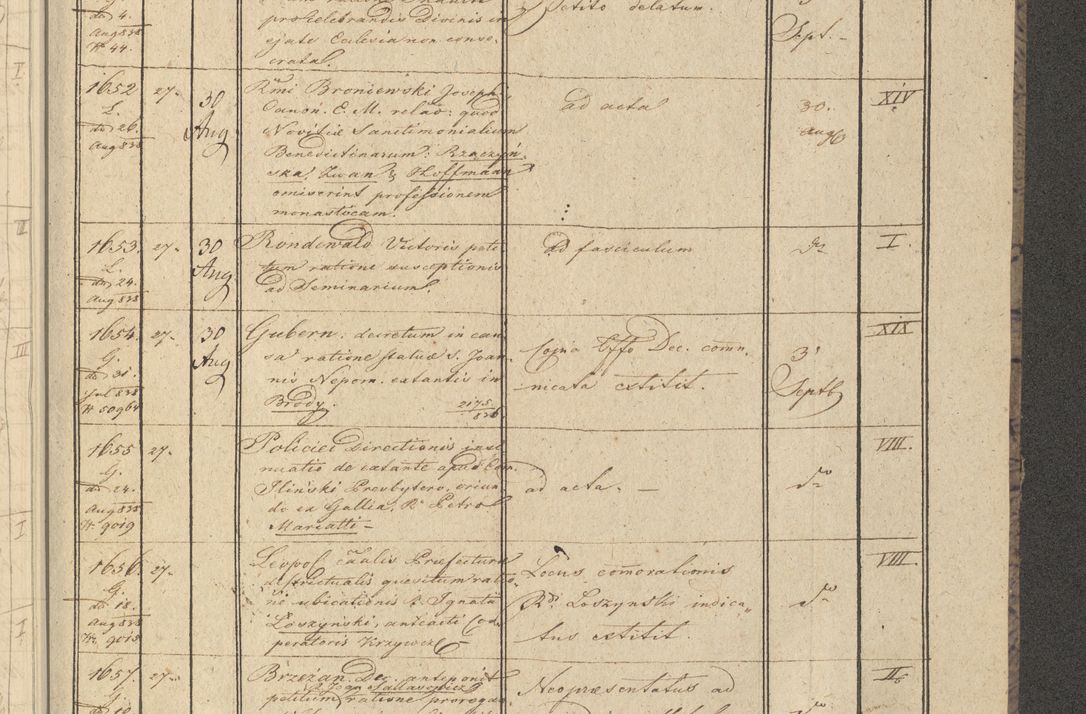 de 4.
Aug 838
N 44.
pro celebrandis divinis in
ejate Ecclesia non conse-
crata.
Petito delatum.
3
Sept. -
1652
L.
de 26.
Aug 838
27.
30
Aug
Rmi Broniewski Joseph
Canon. E. M. relao: quod
Novitiæ Sanctimonialium
Benedictinarum: Rzączyń-
ska, Zwan & Hoffmann
emiserint professionem
monasticam.
ad acta
30.
Aug
XIV
1653.
L.
de 24.
Aug 838
27.
30
Aug
Rondewald Victoris peti-
tum ratione susceptionis
ad Seminarium.
ad fasciculum
do
I.
1654.
G.
de 31.
Jul 838
N 50964
27.
30
Aug
Gubern: decretum in cau-
sa ratione statuæ S. Joan-
nis Nepom. extantis in
Brody.
2175/836
Copia Offo Dec. comm-
nicata extitit.
3
Septb
XIX
1655
G.
de 24.
Aug 838
N 9019
27.
Policiei Directionis insi-
nuatio de extante apud Com.
Iliński Presbytero, oriun-
do ex Gallia, R. Petro
Mariatti -
ad acta. -
do
VIII.
1656.
G.
de 18.
Aug 838
N. 9013
27.
Leopol. caalis Præfectura
districtualis quesitum ratio-
ne ubicationis R. Ignatii
Łoszyński, anteacti Coo-
peratoris Krzywcze -
Locus comorationis
Rdi Loszynski indica-
tus extitit.
do
VIII.
1657.
G.
27.
Brzeżan. Dec. anteponit
petitum ratione proroga-
Neopræsentatus ad
do
II.